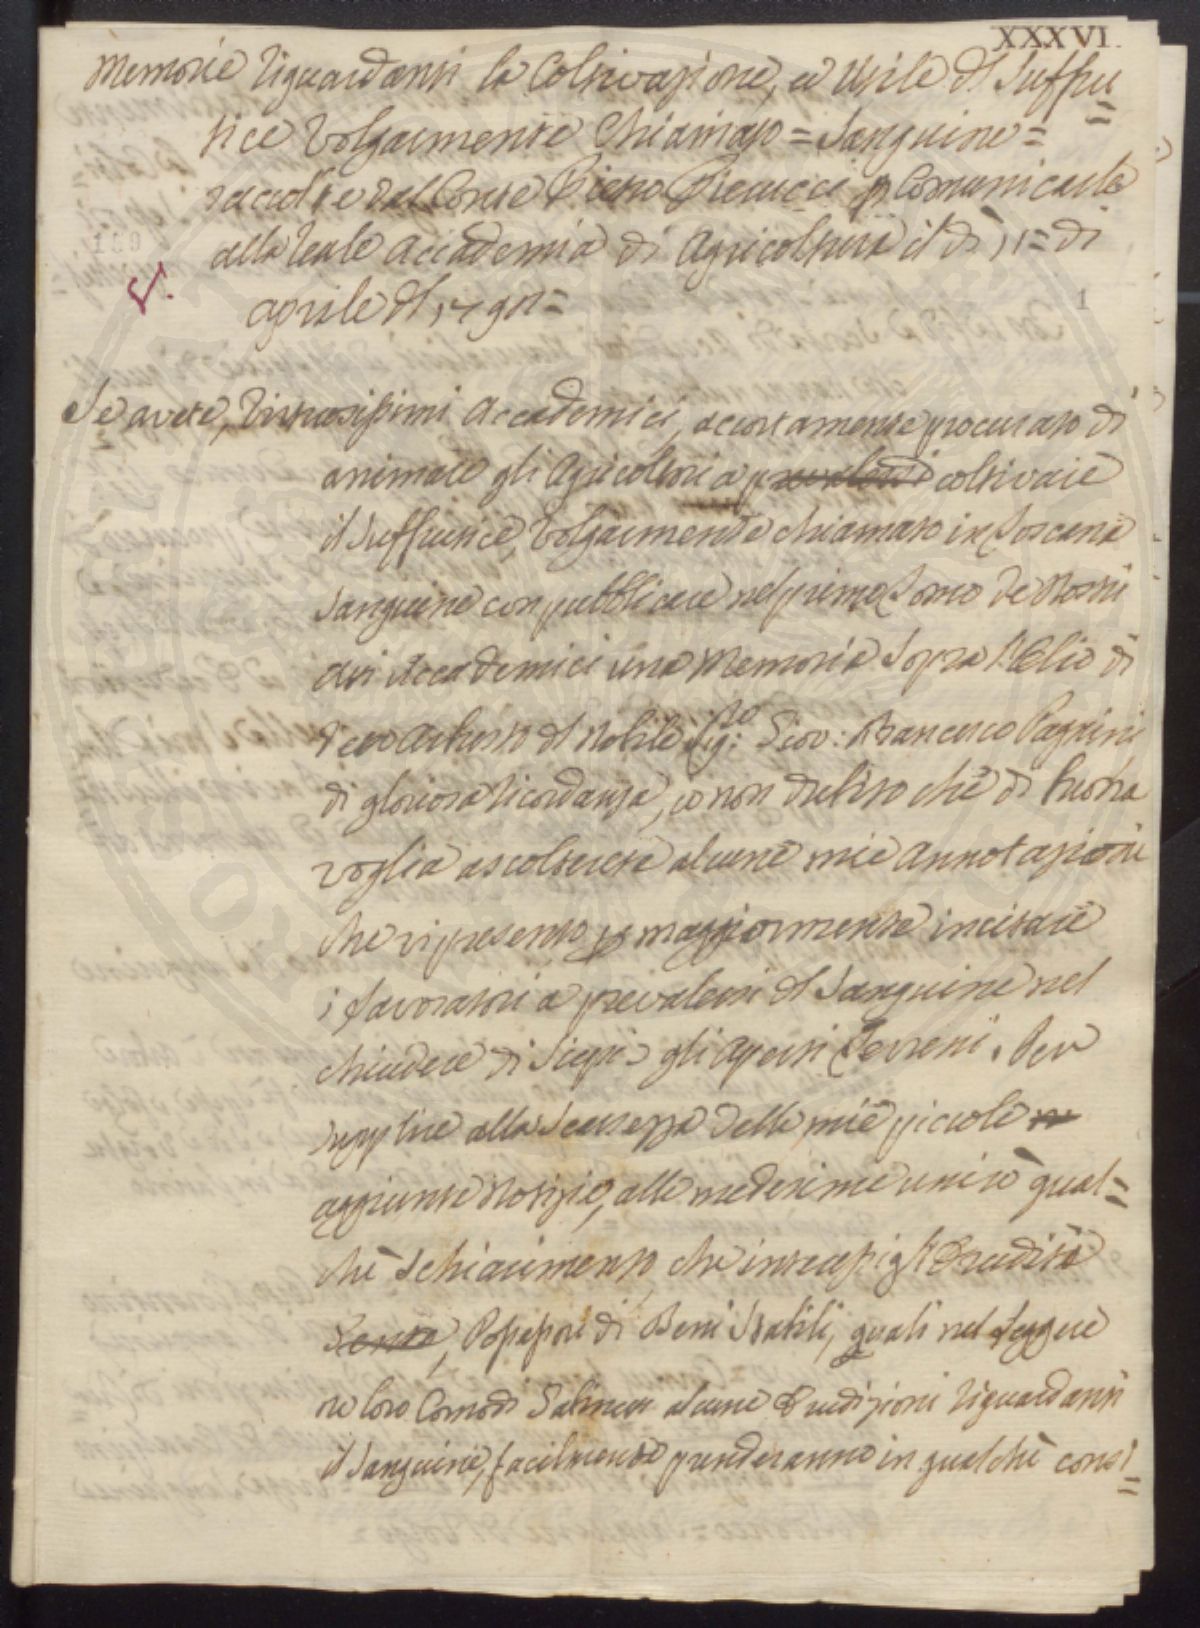 XXXVI.
Memorie riguardanti la Coltivazione, ed Utile dl Suffru=
tice volgarmente Chiamato = Sanguine =
raccolte dal Conte Pietro Pierucci p Comunicarle
alla Reale Accademia di Agricoltura il dì 11 = di
189
Aprile dl 179 =
1
Se avete, Virtuosissimi Accademici, accortamente procurato di
animare gli Agricoltori a prevalersi coltivare
il Suffrutice, volgarmente chiamato in Toscana
Sanguine con pubblicare nel primo Tomo de Nostri
Atti Accademici una Memoria Sopra l'Olio di
detto Arbusto dl Nobile Sig:re Giov: Francesco Pagnini
di gloriosa ricordanza, io non dubito che di buona
voglia ascolterete alcune mie Annotazioni
che vi presento p maggiormente incitare
i Lavoratori a prevalersi dl Sanguine nel
chiudere di Siepi gli aperti Terreni. Per
supplire alla Scarsezza delle mie piccole
aggiunte Notizie, alle medesime unirò qual=
che Schiarimento, che interessi gl'Eruditi
Possessori di Beni Stabili, quali nel Leggere
ne loro Comodi alcune Erudizioni riguardanti
il Sanguine, facilmente prenderanno in qualche consi=